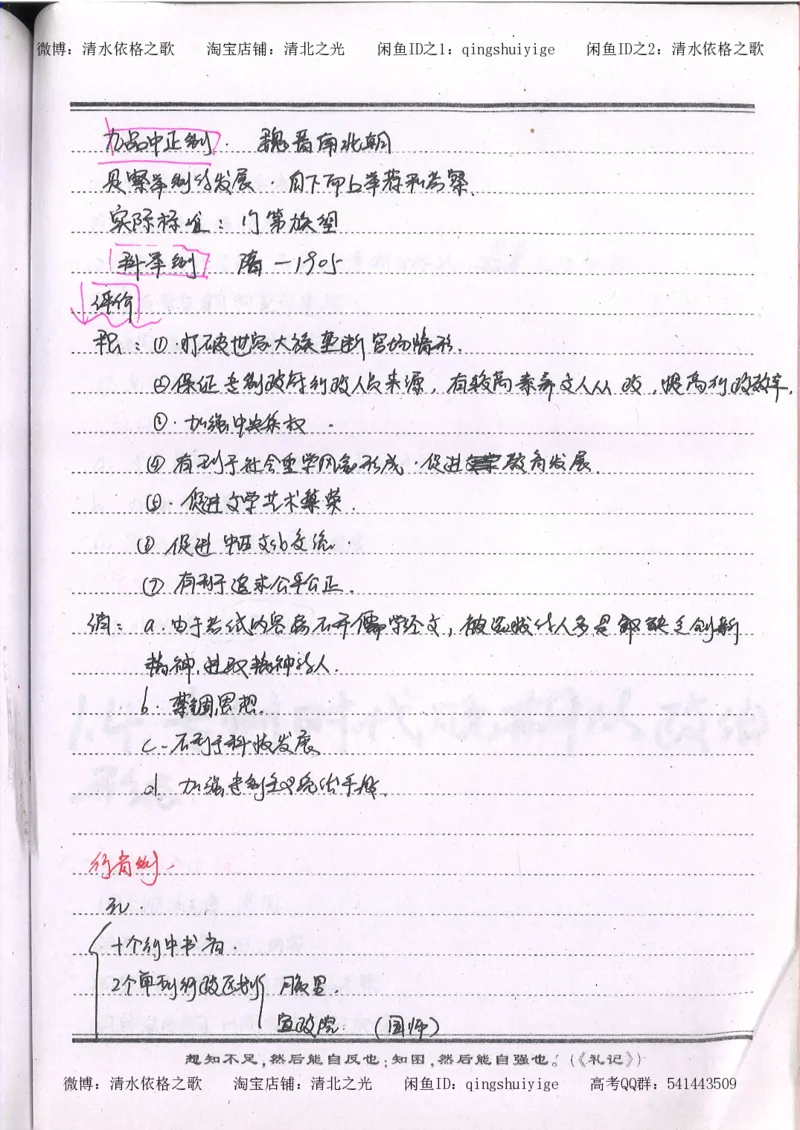 微博：清水依格之歌 淘宝店铺：清北之光 闲鱼ID之1：qingshuiyige 闲鱼ID之2：清水依格之歌
九品中正制． 魏晋南北朝
是察举制的发展．自下而上举荐和考察．
实际标准：门第族望
科举制 隋－1905
评价
积：①．打破世家大族垄断官的情形．
②保证专制政府行政人员来源，有较高素养文人从政，提高行政效率．
③．加强中央集权．
④有利于社会重学风气形成．促进教育发展．
⑤．促进文学艺术繁荣．
⑥促进中西文化交流．
⑦有利于追求公平公正．
消：a．由于考试内容离不开儒学经文，被选拔的人多是部缺乏创新
精神，进取精神的人．
b．禁锢思想．
c．不利于科技发展
d．加强专制主义统治手段．
行省制．
元．
十个行中书省．
2个单列行政区划 腹里
宣政院 （国师）
想知不足,然后能自反也;知困,然后能自强也。(《礼记》)
微博：清水依格之歌 淘宝店铺：清北之光 闲鱼ID：qingshuiyige 高考QQ群：541443509